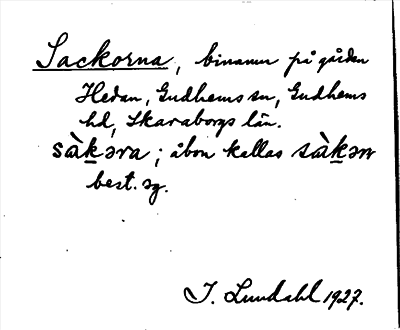 Sackorna, binamn på gården
Hedan, Gudhems sn, Gudhems
hd, Skaraborgs län.
sàkəra; åbon kallas sàkər
best. sg.
I. Lundahl 1927.